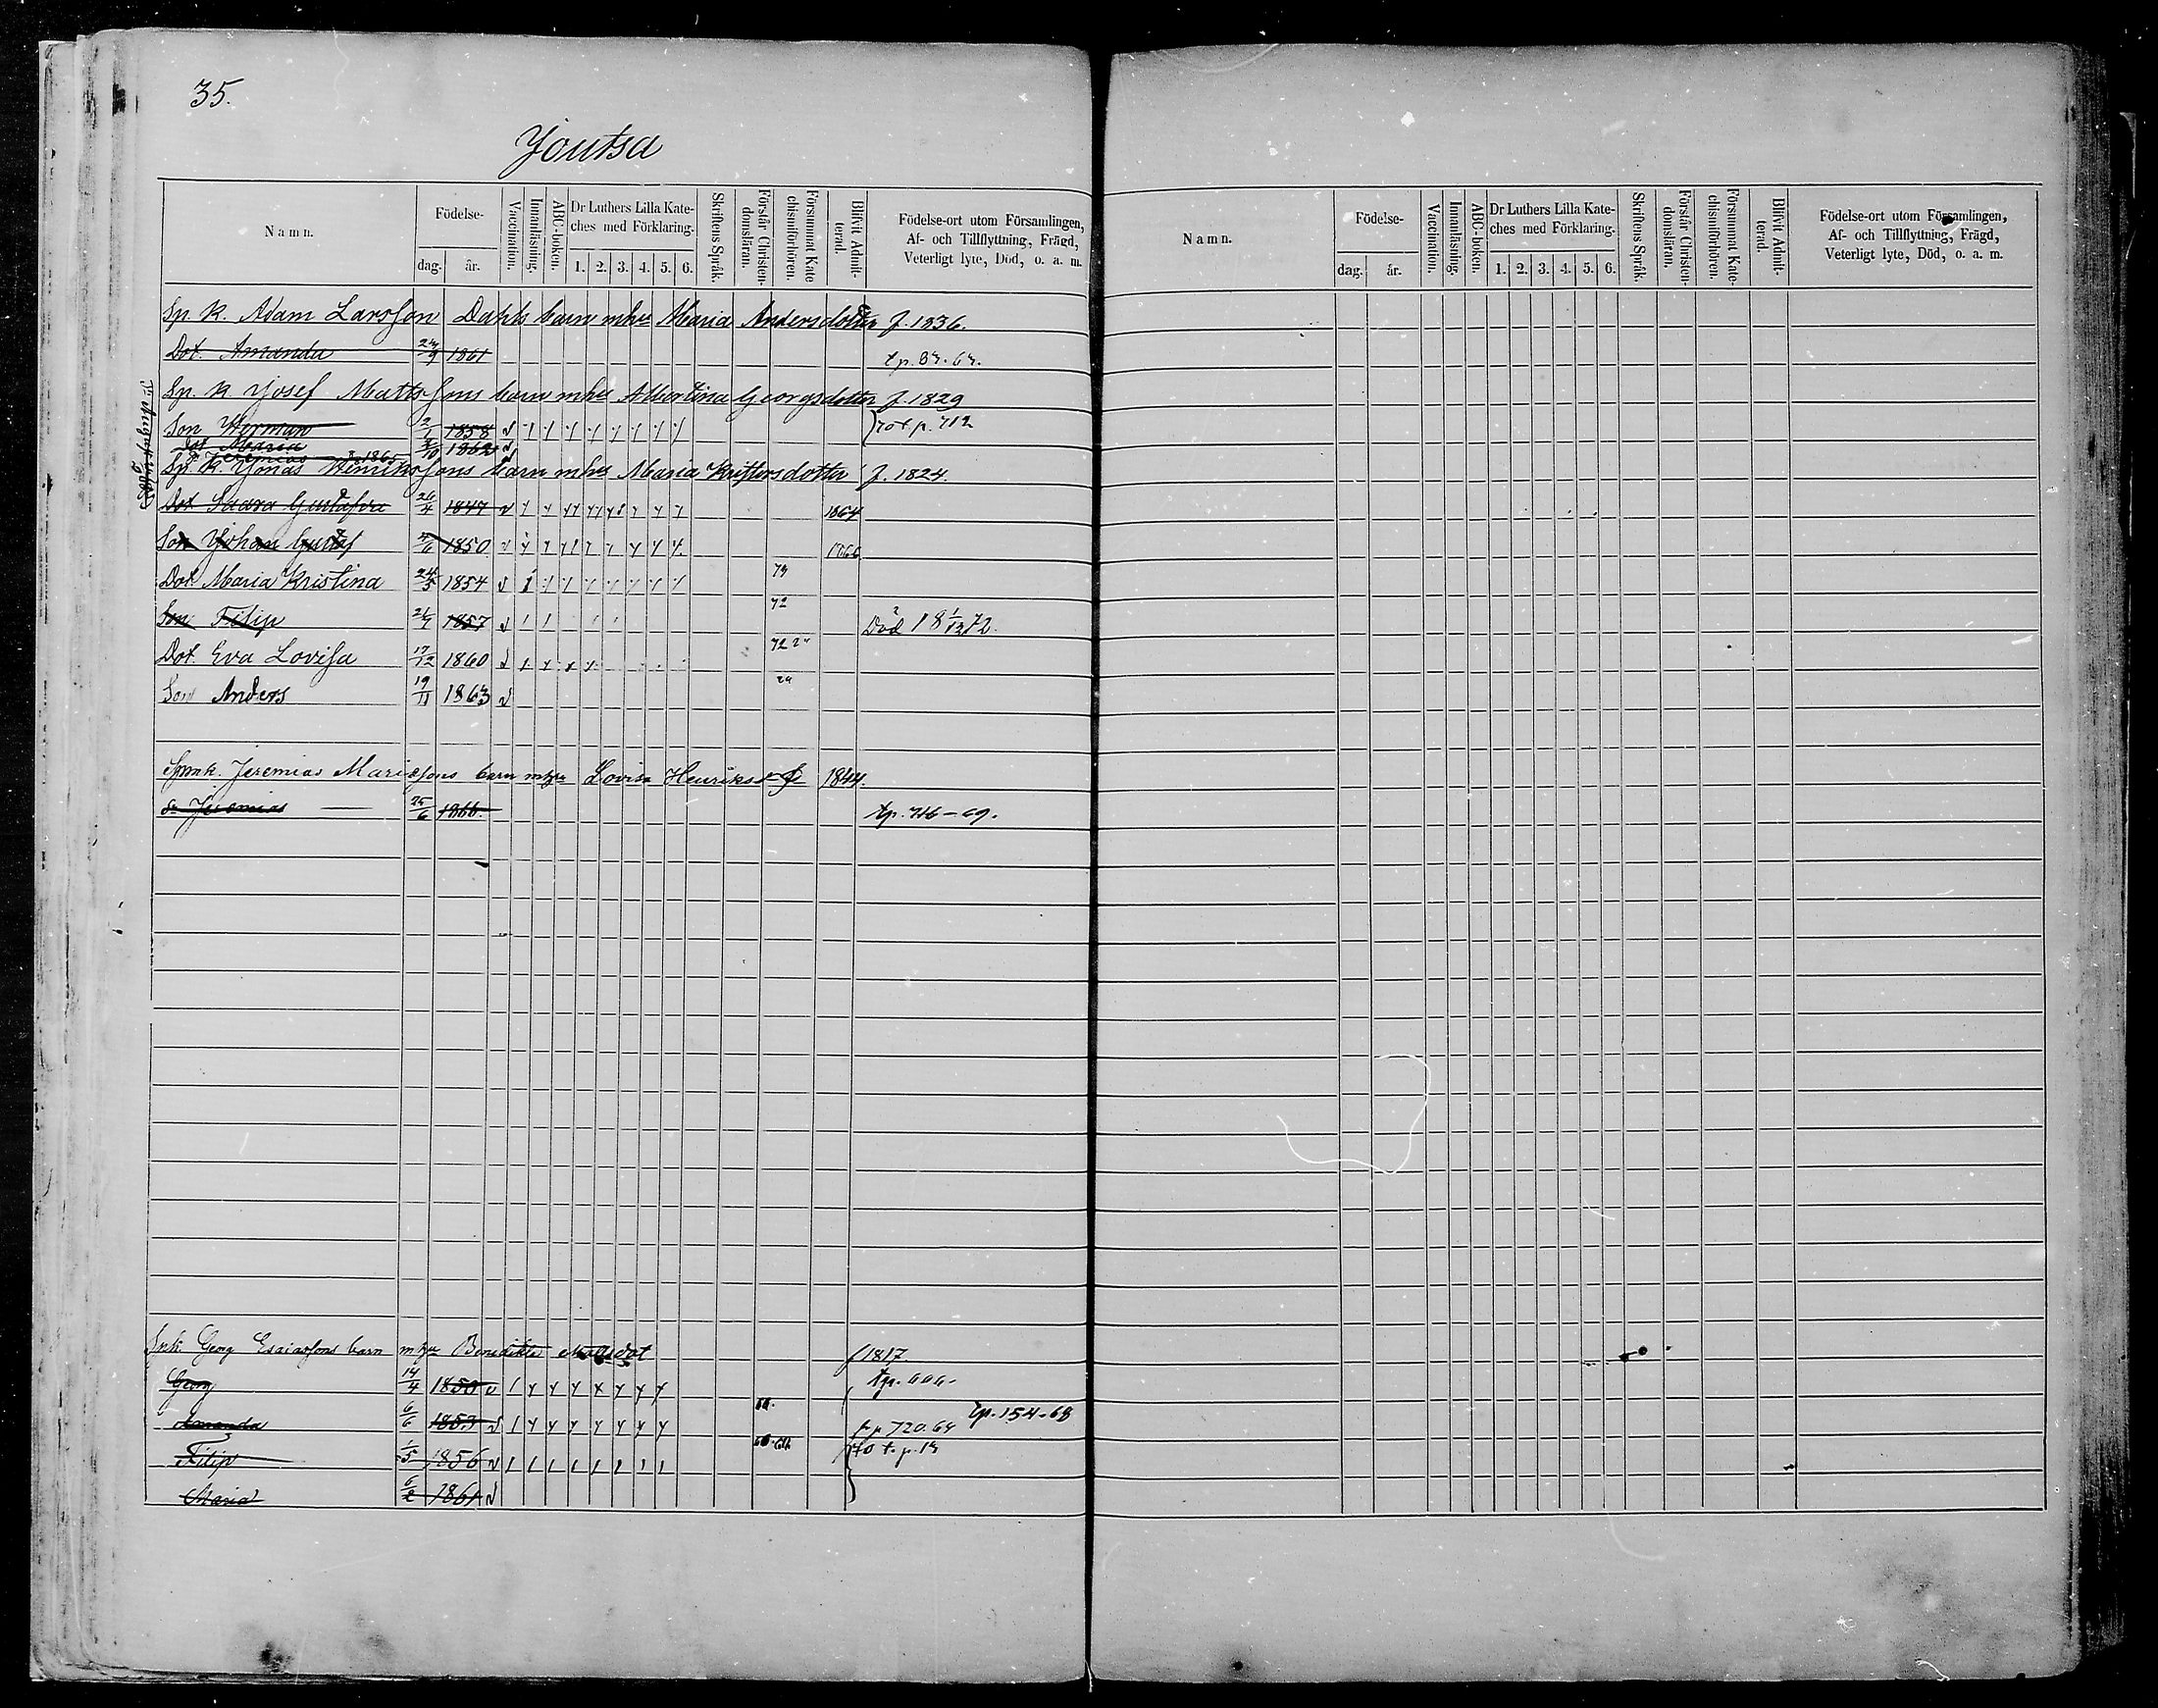 35.
Joutsa
Namn. Födelse- dag. år. Vaccination. Innanläsning. ABC-boken. Dr Luthers Lilla Kateches med Förklaring. 1. 2. 3. 4. 5. 6. Skriftens Språk. Förstår Christendomsläran. Försummat Katechismiförhören. Blifvit Admitterad. Födelse-ort utom Församlingen, Af- och Tillflyttning, Frägd, Veterligt lyte, Död, o. a. m.
Sp. K. Adam Larsson Dahls barn mhu Maria Andersdotter f. 1836.
Dot. Amanda 1861 tp.
Sp. K Josef Mattssons barn mhu Albertina Georgsdotter f. 1829
Son Herman 2/1 1858 p. 712
Dot Maria 1862
Jeremias 1865
Sp. K. Jonas Henrikssons barn mhu Maria Kristersdotter f. 1824.
Dot Saara Gustafva 26/4 1847 1864
Son Johan Gustaf 1850 1866
Dot. Maria Kristina 24/5 1854 73
Son Filip 1857 72 Död 18 1/12 72.
Dot. Eva Lovisa 17/12 1860 72
Son Anders 19/11 1863
Spmk. Jeremias Mariæsons barn mhu Lovisa Henriksd 1844.
Sn Jeremias 25/6 1866. tp. 716-69.
Snk. Georg Esaiassons barn mhu Benedikta Mattsdot f 1817
Georg 14/4 1850 tp.
Amanda 6/6 1853 tp. 154-68
720.64
Filip 1/5 1856 70 t. p.
Maria 6/2 1861
Namn. Födelse- dag. år. Vaccination. Innanläsning. ABC-boken. Dr Luthers Lilla Kateches med Förklaring. 1. 2. 3. 4. 5. 6. Skriftens Språk. Förstår Christendomsläran. Försummat Katechismiförhören. Blifvit Admitterad. Födelse-ort utom Församlingen, Af- och Tillflyttning, Frägd, Veterligt lyte, Död, o. a. m.